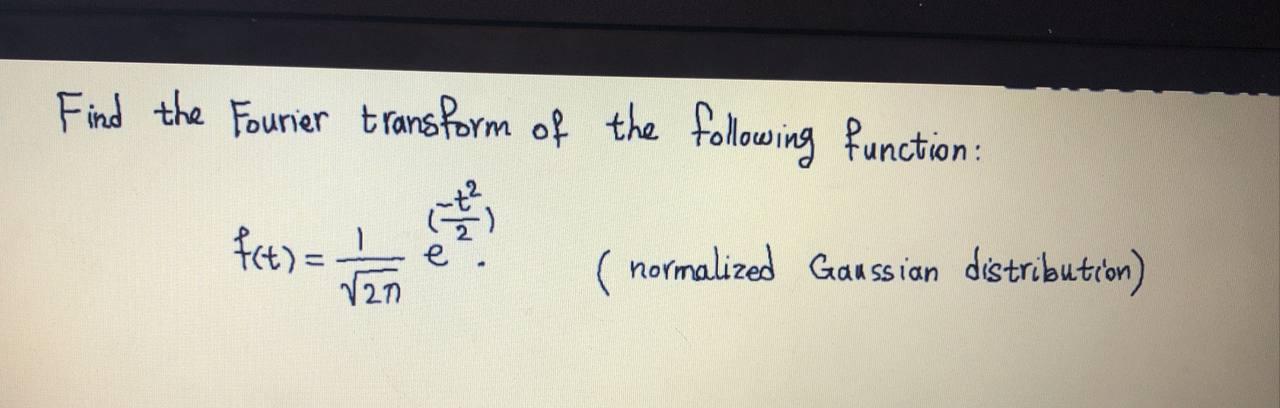 Find the Fourier transform of the following function:
f(t) = 1/√2π e^(-t²/2). (normalized Gaussian distribution)